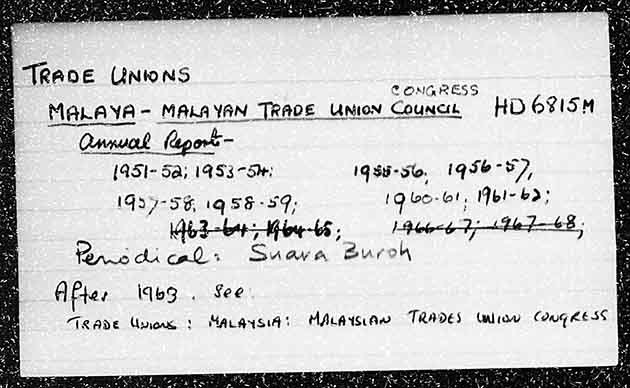 TRADE UNIONS
CONGRESS
MALAYA - MALAYAN TRADE UNION COUNCIL HD6815M
Annual Report -
1951-52; 1953-54; 1955-56; 1956-57,
1957-58; 1958-59; 1960-61; 1961-62;
1963-64; 1964-65; 1966-67; 1967-68;
Periodical: Suara Buroh
After 1963. See
TRADE UNIONS: MALAYSIA: MALAYSIAN TRADES UNION CONGRESS